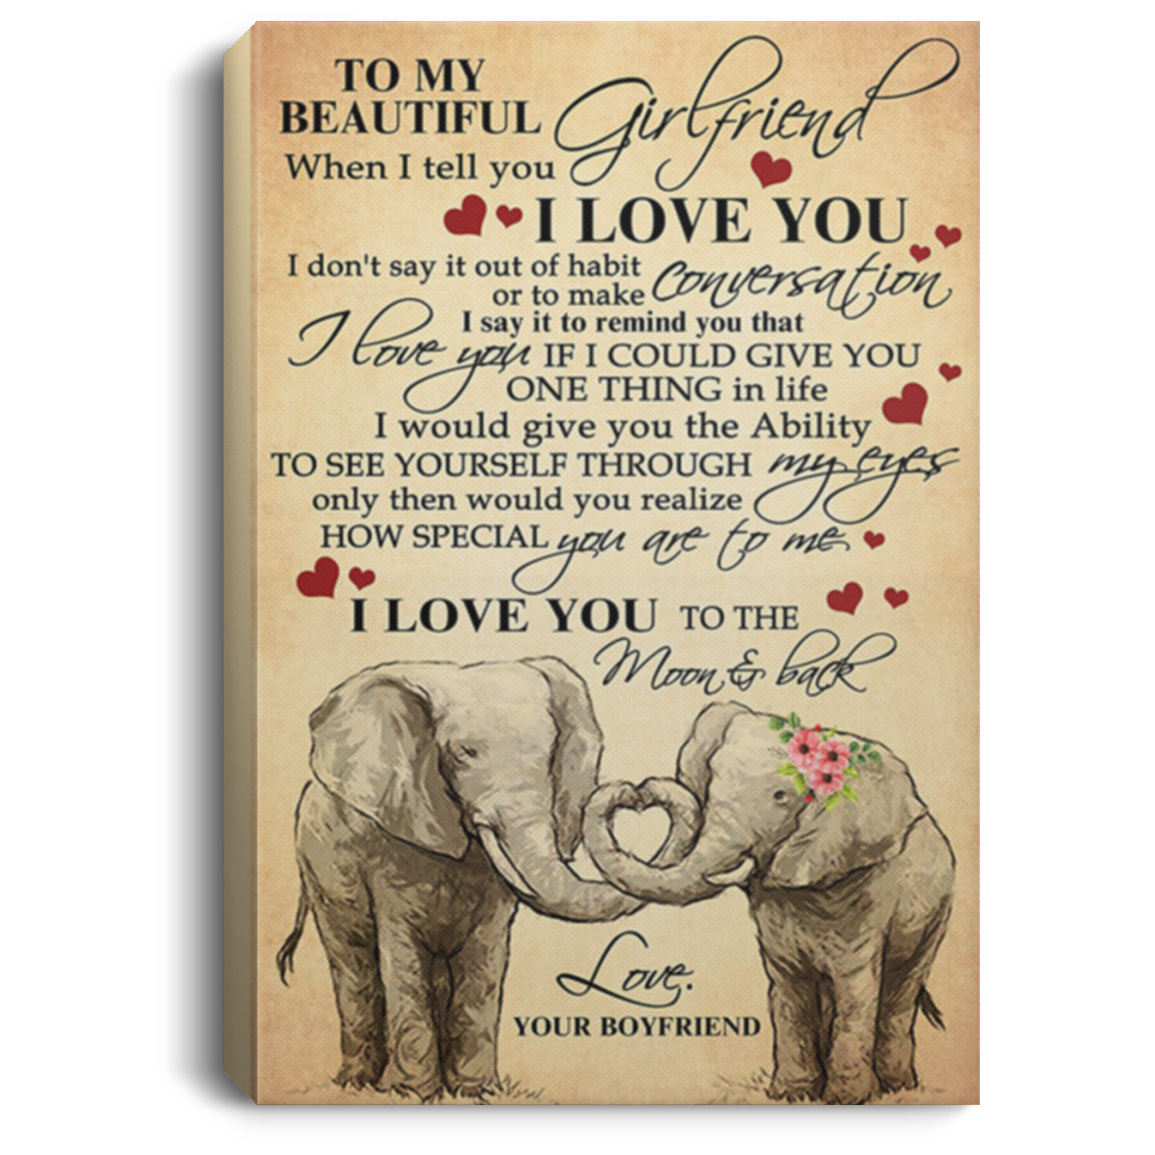 TO MY
BEAUTIFUL Girlfriend
When I tell you
I LOVE YOU
I don't say it out of habit
or to make conversation
I say it to remind you that
I love you IF I COULD GIVE YOU
ONE THING in life
I would give you the Ability
TO SEE YOURSELF THROUGH my eyes
only then would you realize
HOW SPECIAL you are to me
I LOVE YOU TO THE
Moon & back
Love.
YOUR BOYFRIEND